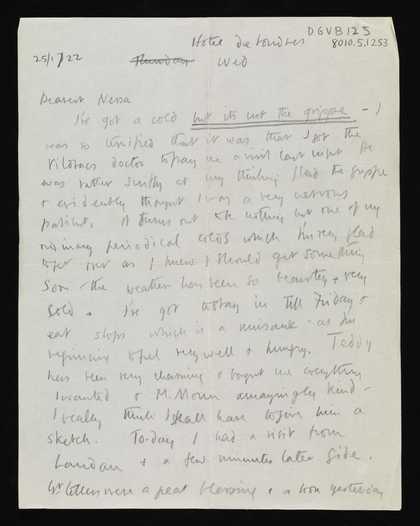 Hotel de Londres
DGVB 125
8010.5.1253
25/1/22
Thursday Wed
Dearest Nessa
I've got a cold but its not the grippe – I
was so terrified that it was that I got the
doctor to pay me a visit last night. He
was rather at my thinking I had the grippe
& evidently thought I was a very nervous
patient. It turns out to be nothing but one of my
ordinary periodical colds which I'm very glad
to get over as I knew I should get something
soon – the weather has been so & very
cold. I've got to stay in till Friday &
eat slops which is a nuisance – as I'm
beginning to feel very well & hungry. Teddy
has been very charming & bought me everything
I wanted & M. amazingly kind –
I really think I shall have to give him a
sketch. To-day I had a visit from
Landau & a few minutes later Gide.
Yr letters were a great blessing & a boon yesterday